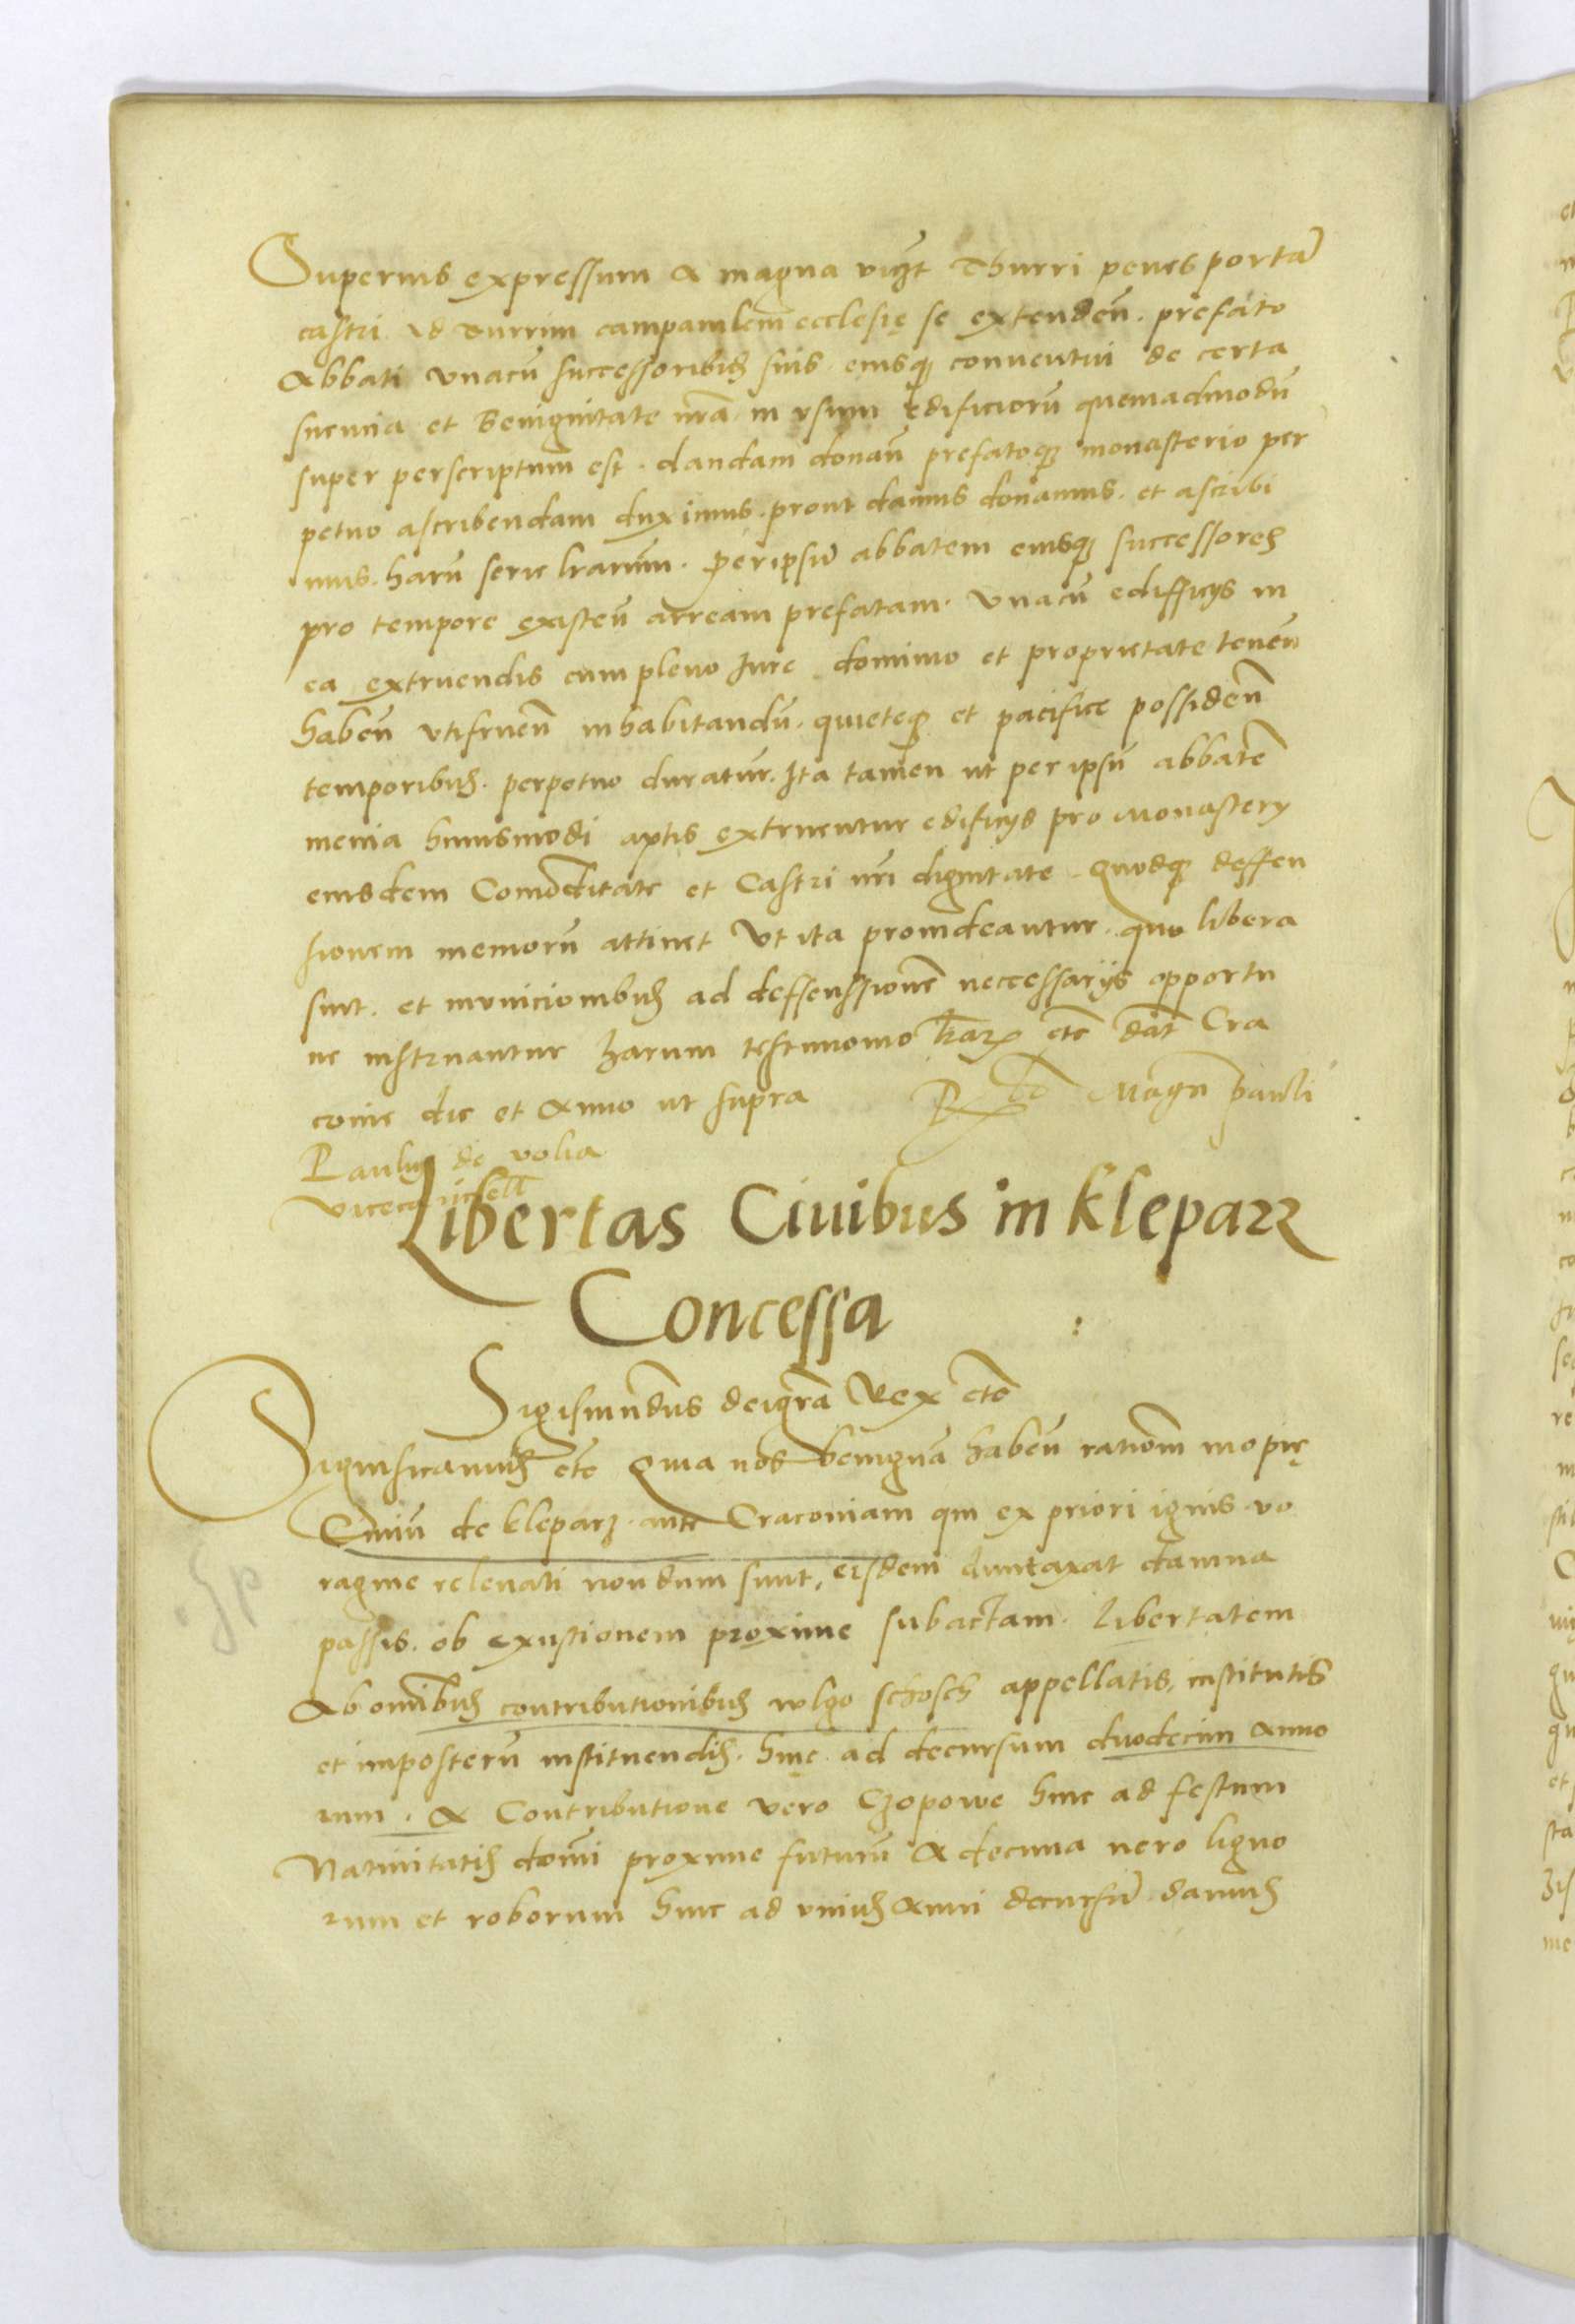 Superius expressum A magna viꝫt Thurri penes portā
castri Ad Turrim campanilem ecclesię se extendeñ. prefato
Abbati vnacū successoribꝫ suis eiusqꝫ conventui de certa
sciencia et Benignitate nrā in vsum Edificiorū quemadmodū
super perscriptum est. dandam donañ prefatoqꝫ monasterio per
petuo ascribendam duximus. prout damus donamus. et ascribi
mus. harū serie lrarum. Per ipsū abbatem eiusqꝫ successores
pro tempore existeñ arream prefatam. Vnacū edifficijs in
ea extruendis cum pleno Iure dominio et proprietate teneñ
habeñ vtifrueñ inhabitandū. quieteqꝫ et pacifice possideñ
temporibꝫ. perpetuo duratur. Ita tamen ut per ipsū abbatē
menia huiusmodi aptis extruentur edificijs pro Monastery
eiusdem Comoditate et Castri nri dignitate Quodqꝫ deffen
sionem meniorū attinet Vt ita provideantur. quo libera
sint. et municionibꝫ ad deffenssionē neccessarijs opportu
ne instruantur harum testimonio lrarꝫ etc dat Cra
covie die et Anno ut supra Magñ pauli
Paulus de volia
vicecancell
Libertas Civibus in kleparz
Concessa :
Sigismundus dei gra Rex etc
Significamus etc Quia nos benignā habeñ rationem inopię
Civiū de kleparz. ante Cracoviam qui ex priori ignis vo
ragine relevati nondum sunt, eisdem duntaxat damna
passis. ob exustionem proxime subactam. libertatem
Ab omnibꝫ contributionibꝫ wlgo schosch appellatis, institutis
et inposterū instituendis. hinc ad decursum duodecim Anno
rum. A Contributione vero Czopowe hinc ad festum
Nativitatis domi proxime futurū A decima vero ligno
rum et roborum hinc ad vnius Anni decursū damus